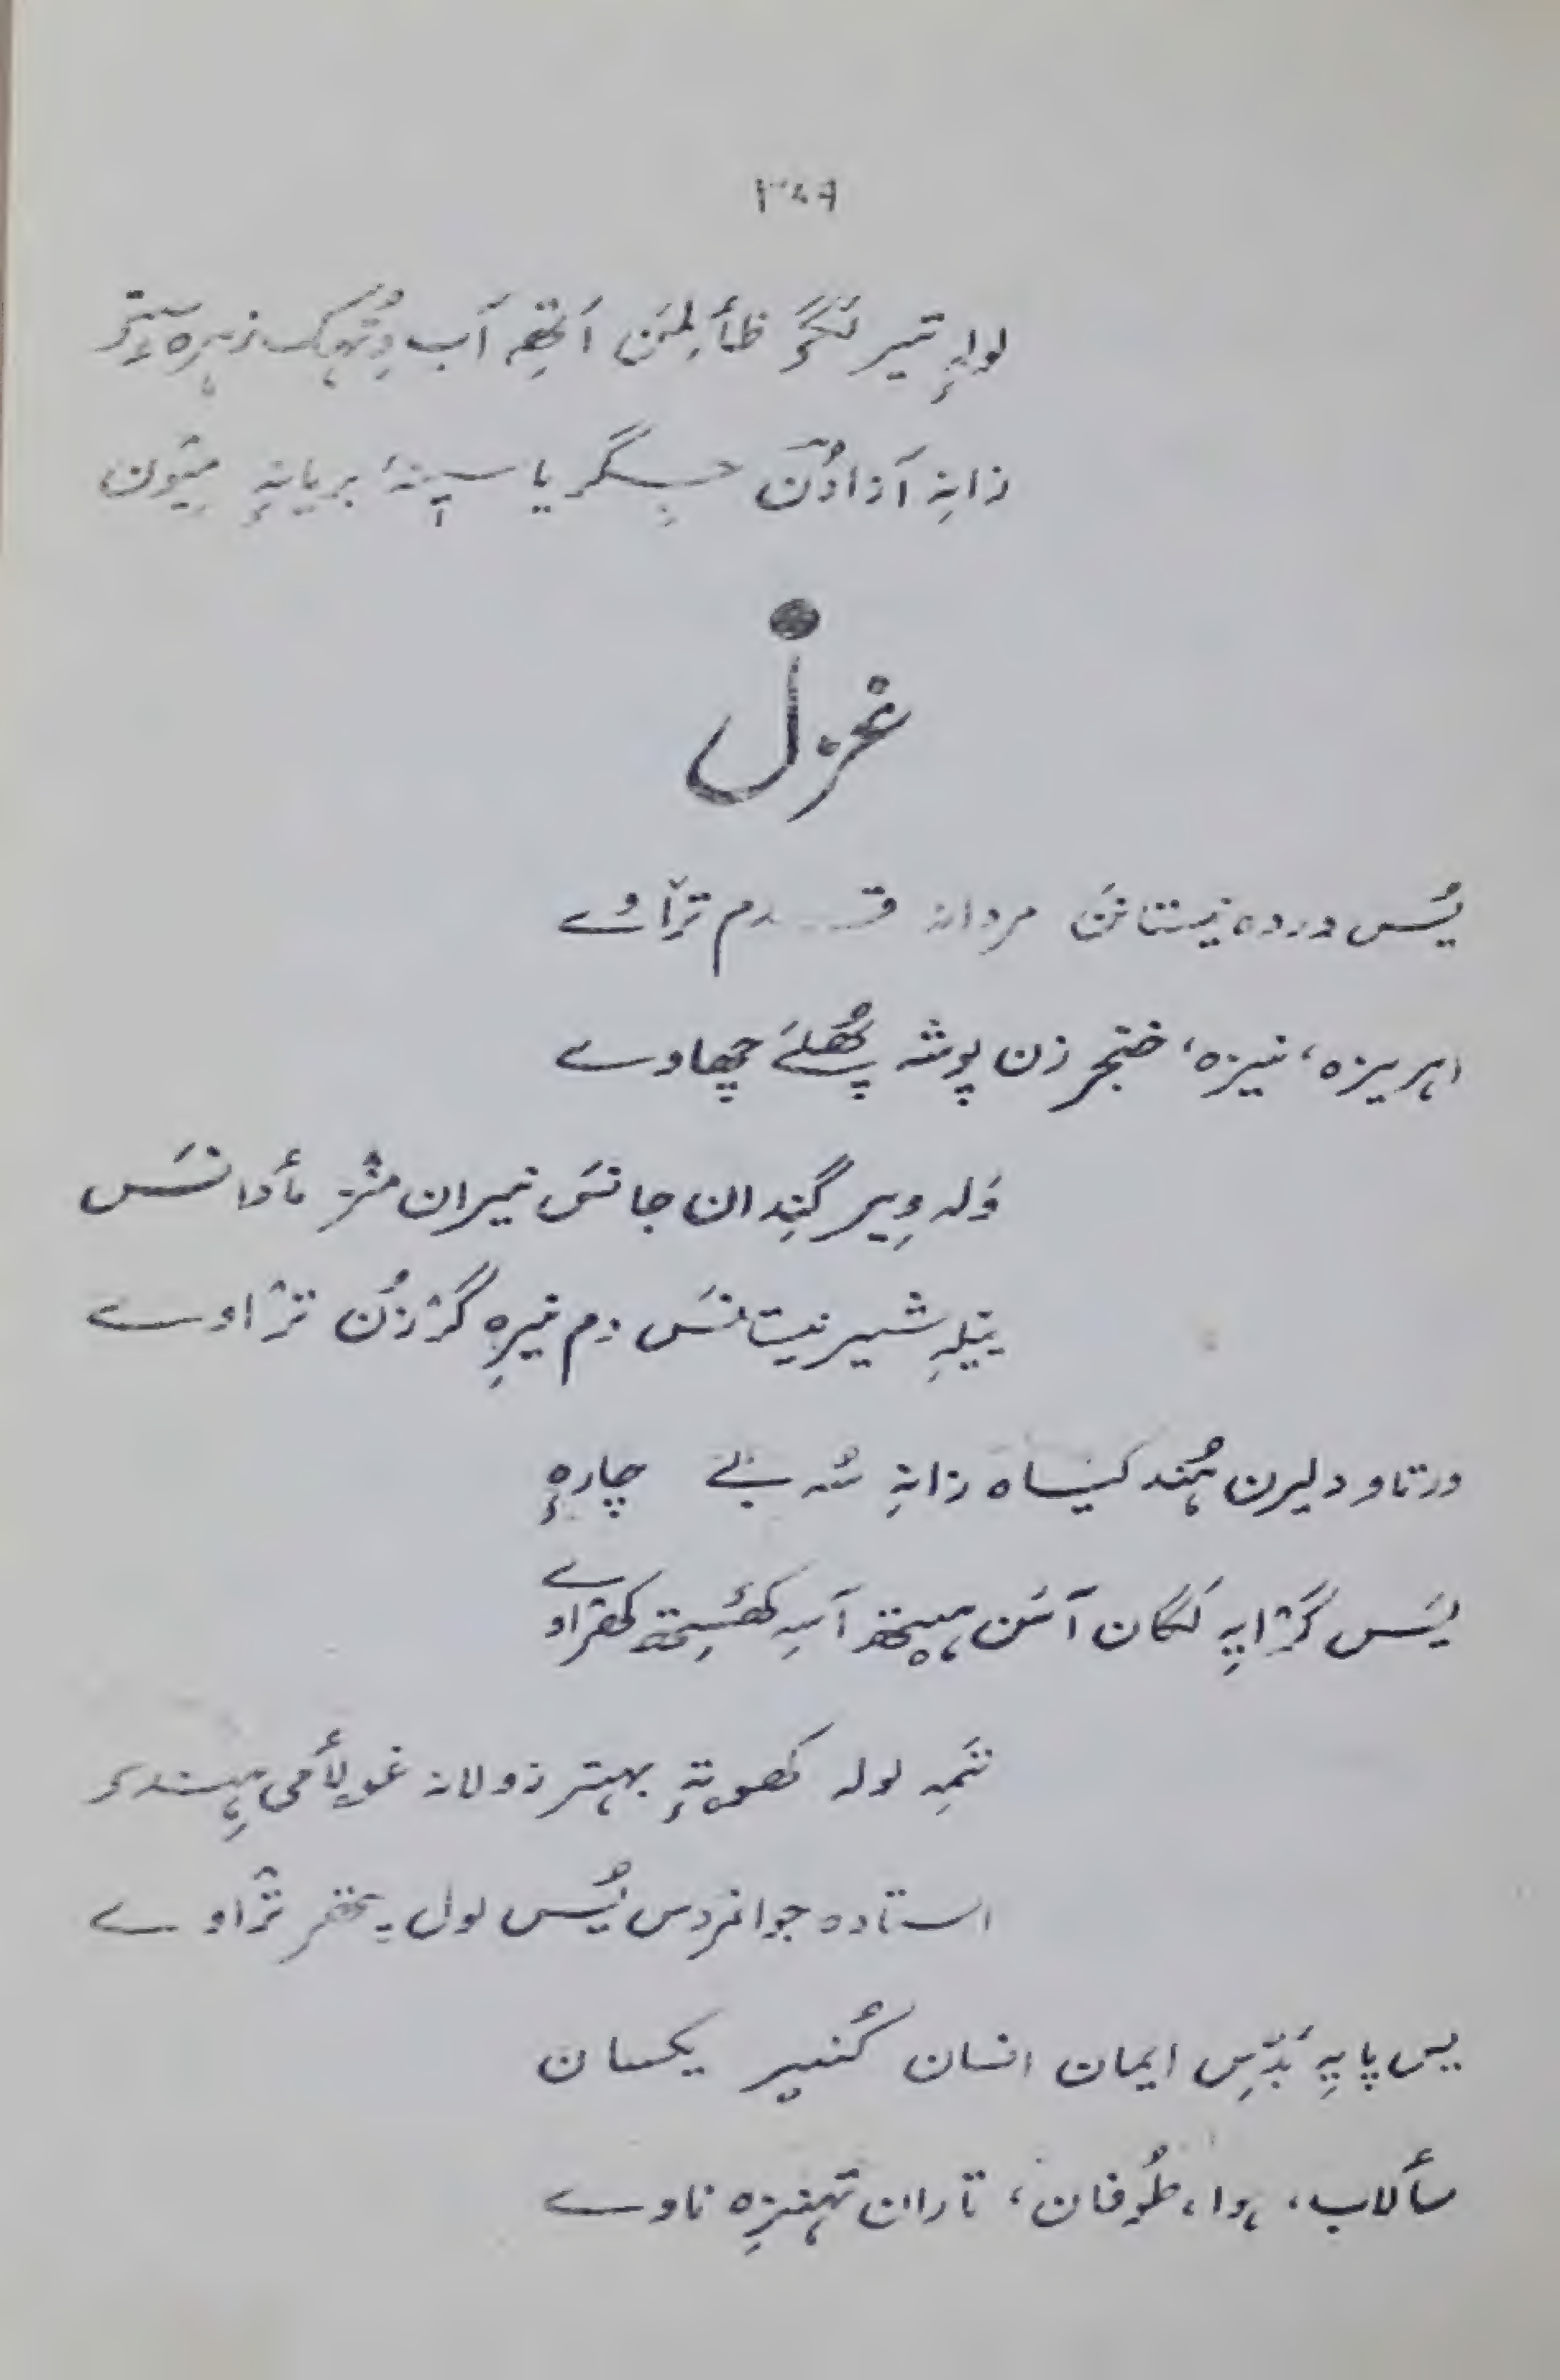 ۳۵۹
لولہٕ تیر لَگَو ظألِمَن اَتھِ آب دِتُہک زہرہ تِتَر
زانہِ آزادُن جِگر یا سینۂ بریانہٕ میون
غزل
یُس درده نیستانَن مردانہ قدم ترٛاوے
اہریزہ، نیزہ، خنجر زن پوشہ پھُلَے چھاوے
وَلہ وِیر گِندان جانَس تیران منٛز مأدانَس
ییلہِ شیر نیستانَس دم نیرِہ گرٛزُن ترٛاوے
درتاو دلیرن ہُند کیاہ زانہِ سُہ بے چارہٕ
یَس گرٛایہِ لَگان آسَن ہیتھ آسہِ کھٔستِھ کھرٛاوے
تَمہِ لولہ کھوتہٕ بہتر زولانہ غولأمی ہِند
استادہ جوانمردس یُس لول پتھر ترٛاوے
یس پایہِ بَدِس ایمان انسان کُنیر یکسان
سألاب، ہوا، طُوفان، تاران تہنزِہ ناوے